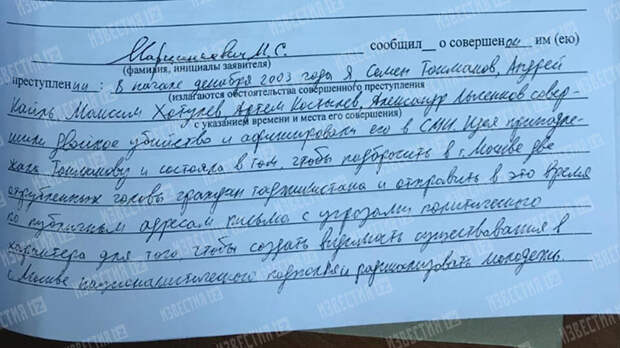 Марцинкевич М.С. сообщил_ о совершенном им (ею)
(фамилия, инициалы заявителя)
преступлении: В начале декабря 2003 года Я Семен Токмаков, Андрей
(излагаются обстоятельства совершенного преступления
Кайль, Максим Хотулев Артем Костылев, Александр Лысенков совер-
с указанием времени и места его совершения)
шили двойное убийство и афишировали его в СМИ. Идея принадле-
жала Токмакову и состояла в том чтобы подбросить в г. Москве две
отрубленных головы граждан таджикистана и отправить в это время
по публичным адресам письма с угрозами политического
характера для того, чтобы создать видимость существования в
г. Москве националистического подполья и радикализовать молодежь.
ИЗВЕСТИЯ